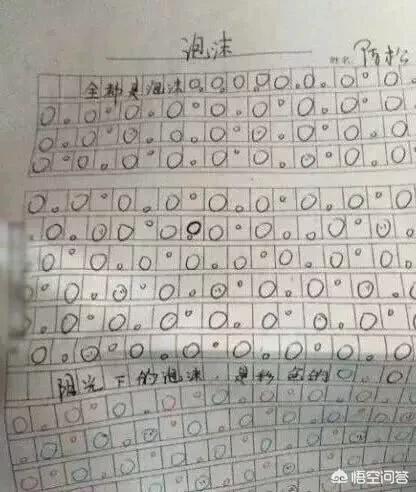 泡沫
姓名
全都是泡沫
阳光下的泡沫，是彩色的
悟空问答